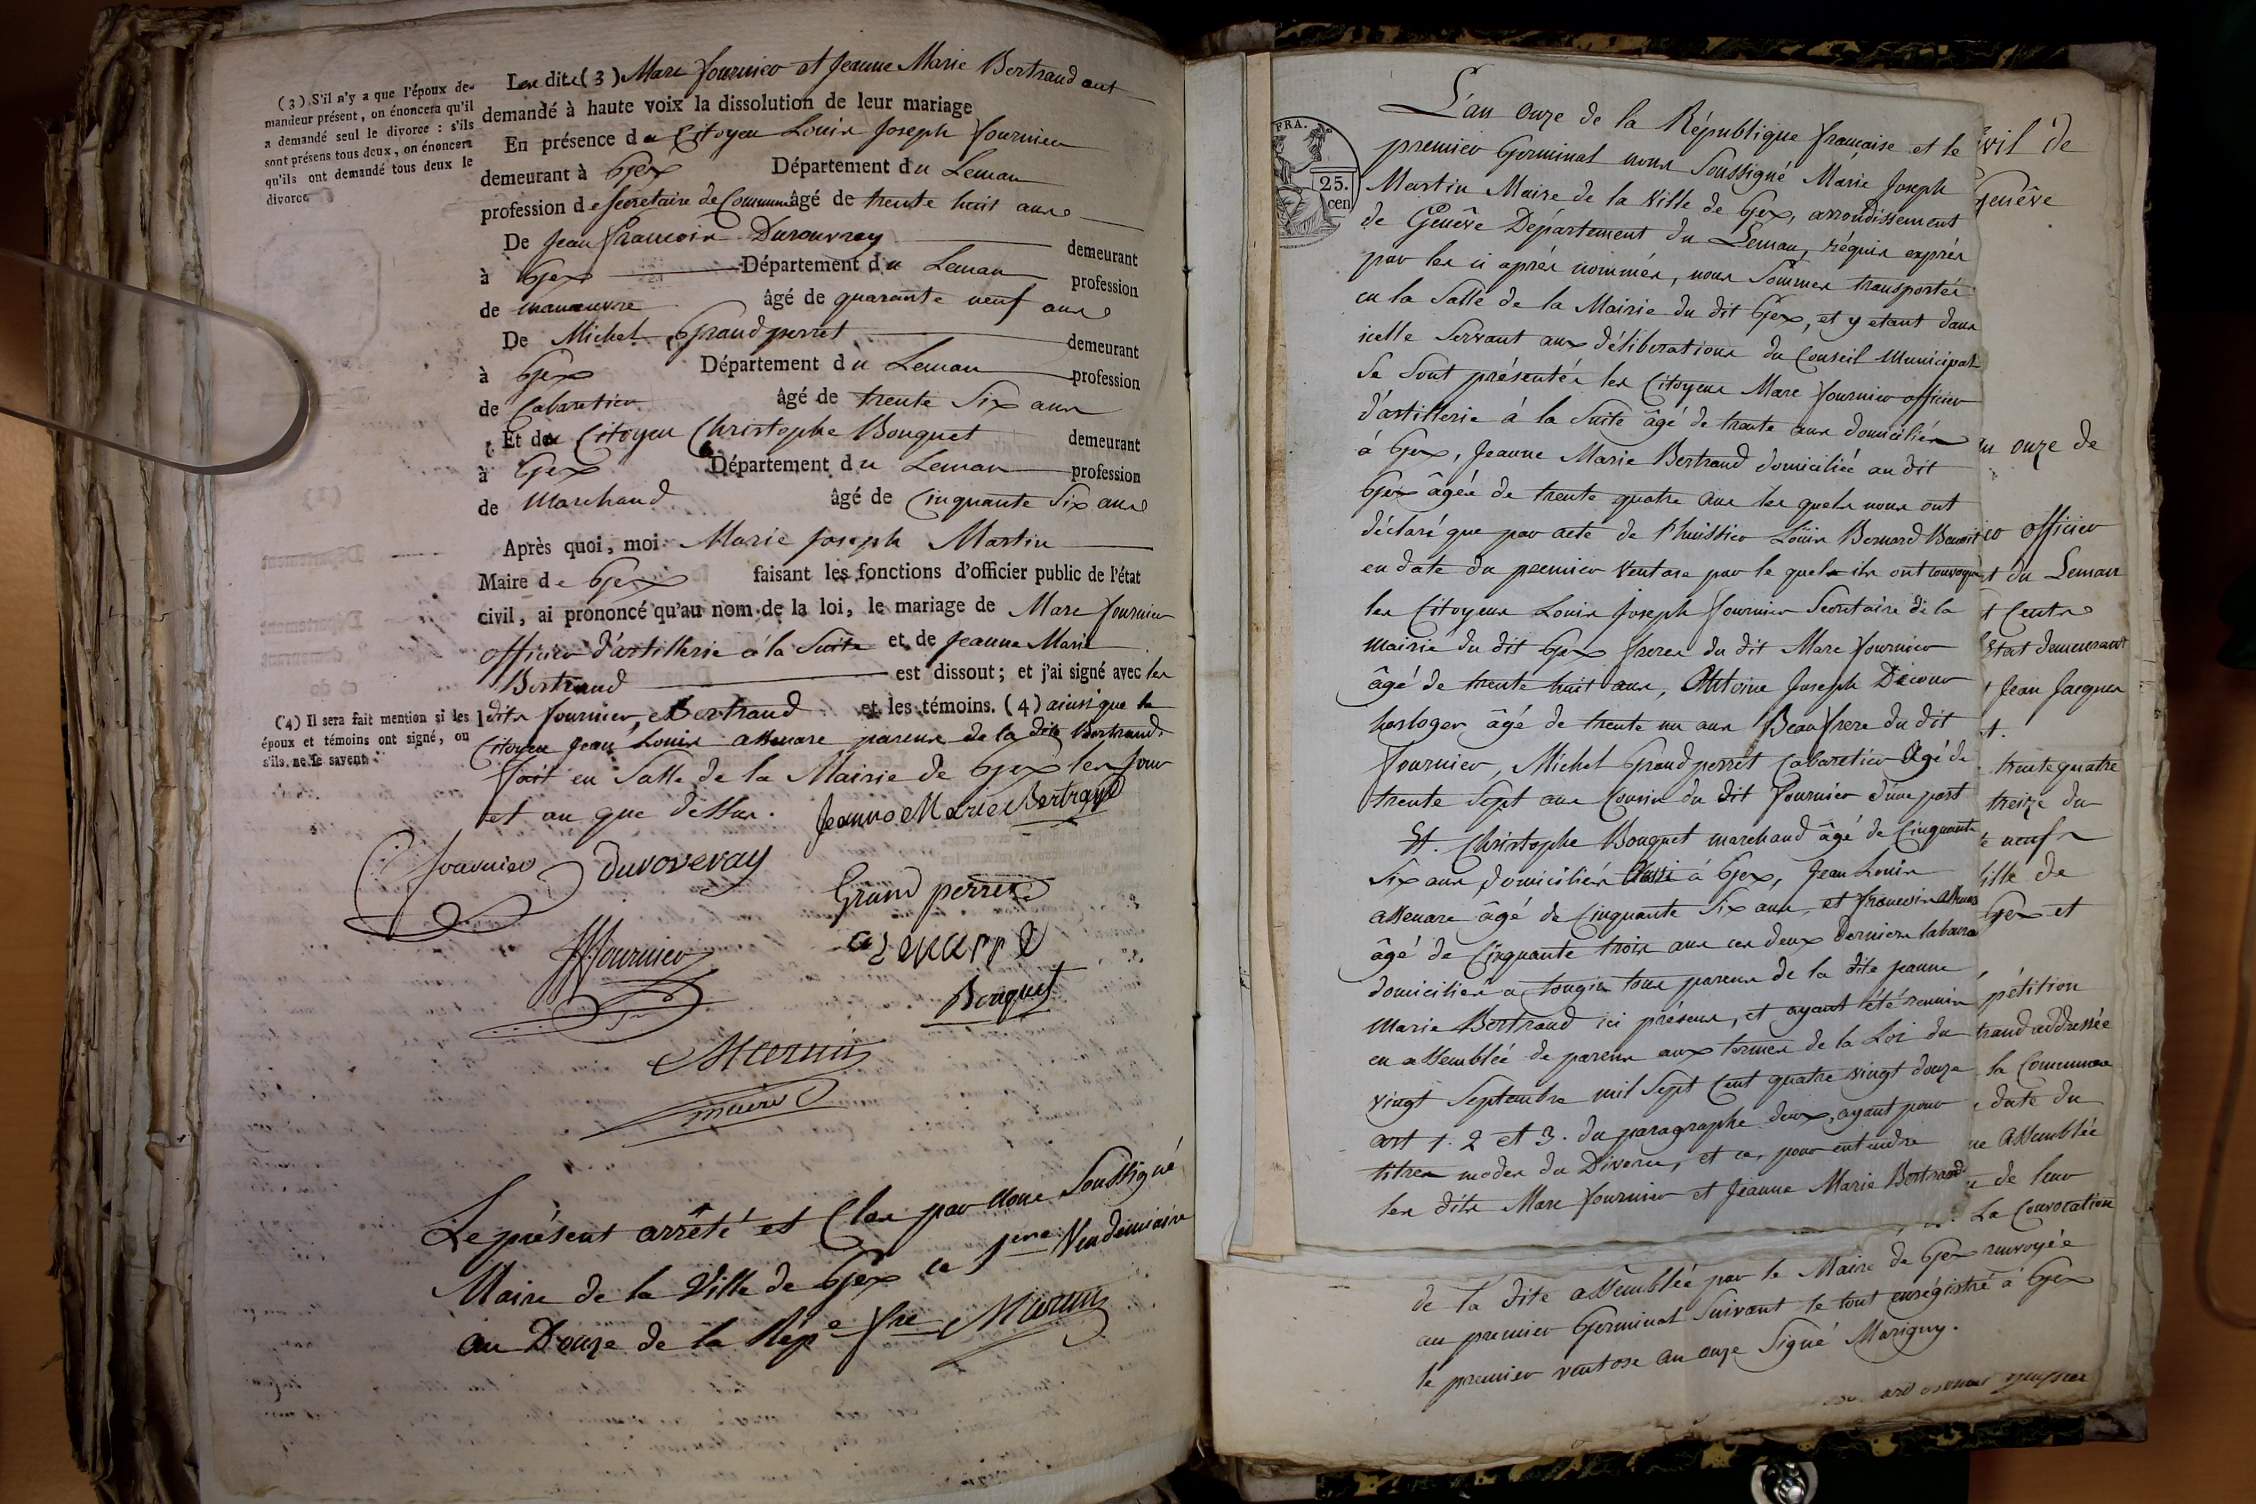 (3) S'il n'y a que l'époux de-
mandeur présent, on énoncera qu'il
a demandé seul le divorce : s'ils
sont présens tous deux, on énoncera
qu'ils ont demandé tous deux le
divorce
Les dits (3) Marc fournier et Jeanne Marie Bertrand ont
demandé à haute voix la dissolution de leur mariage
En présence du Citoyen Louis Joseph fournier
demeurant à Gex Département du Leman
profession de secretaire de Commune âgé de trente huit ans
De Jean francois Durouvray demeurant
à Gex Département du Leman profession
de manœuvre âgé de quarante neuf ans
De Michel Grandperret demeurant
à Gex Département du Leman profession
de Cabaretier âgé de trente Six ans
Et du Citoyen Christophe Bouquet demeurant
à Gex Département du Leman profession
de Marchand âgé de Cinquante Six ans
Après quoi, moi Marie Joseph Martin
Maire de Gex faisant les fonctions d'officier public de l'état
civil, ai prononcé qu'au nom de la loi, le mariage de Marc fournier
officier d'artillerie à la Suite et de Jeanne Marie
Bertrand est dissout ; et j'ai signé avec les
(4) Il sera fait mention si les
époux et témoins ont signé, ou
s'ils ne le savent.
dits fournier, et Bertrand et les témoins. (4) ainsi que le
Citoyen Jean Louis assenare parens de la dite Bertrand.
fait en Salle de la Mairie de Gex les jour
et an que dessus. Jeanne Marie Bertrand
fournier duroveray
Grand perret
fournier
Bouquet
Martin
maire
Le présent arrêté et Clos par nous Soussigné
Maire de la Ville de Gex ce 1ere Vendémiaire
an Douze de la Rép.e fse Martin
FRA.
25.
cen
L'an onze de la République francaise et le
premier Germinal nous Soussigné Marie Joseph
Martin Maire de la Ville de Gex, arrondissement
de Genêve Département du Leman, réquis exprès
par les ci après nommés, nous Sommes transportés
en la Salle de la Mairie du dit Gex, et y etant dans
icelle Servant aux déliberations du Conseil Municipal
Se Sont présentés les Citoyens Marc fournier officier
d'artillerie à la Suite âgé de trente ans domiciliés
à Gex, Jeanne Marie Bertrand domiciliée au dit
Gex âgée de trente quatre ans les quels nous ont
déclaré que par acte de l'huissier Louis Bernard Benoit
en date du premier Ventose par le quel ils ont convoqué
les Citoyens Louis Joseph fournier Secretaire de la
mairie du dit Gex freres du dit Marc fournier
âgé de trente huit ans, Antoine Joseph Decour
horloger âgé de trente un ans Beau frere du dit
fournier, Michel Grandperret Cabaretier Agé de
trente Sept ans Cousin du dit fournier d'une part
Et. Christophe Bouquet marchand âgé de Cinquante
Six ans domiciliés Aussi à Gex, Jean Louis
assenare âgé de Cinquante Six ans, et francois
âgé de Cinquante trois ans ces deux derniers
domiciliés a tougin tous parens de la dite Jeanne
Marie Bertrand ici présens, et ayant été réunis
en assemblée de parens aux termes de la Loi du
vingt Septembre mil Sept Cent quatre vingt douze
art 1. 2 et 3. du paragraphe deux, ayant pour
titres modes du Divorce, et ce, pour entendre
les dits Marc fournier et Jeanne Marie Bertrand
vil de
Genêve
onze de
officier
du Leman
Etat demeurant
Jean Jacques
trente quatre
treize du
neuf
de
Gex et
pétition
addressée
la Commune
date du
Assemblée
de leur
La Convocation
de la dite assemblée par le Maire de Gex renvoyée
au premier Germinal Suivant le tout enrégistré à Gex
le premier ventose an onze Signé Marigny.